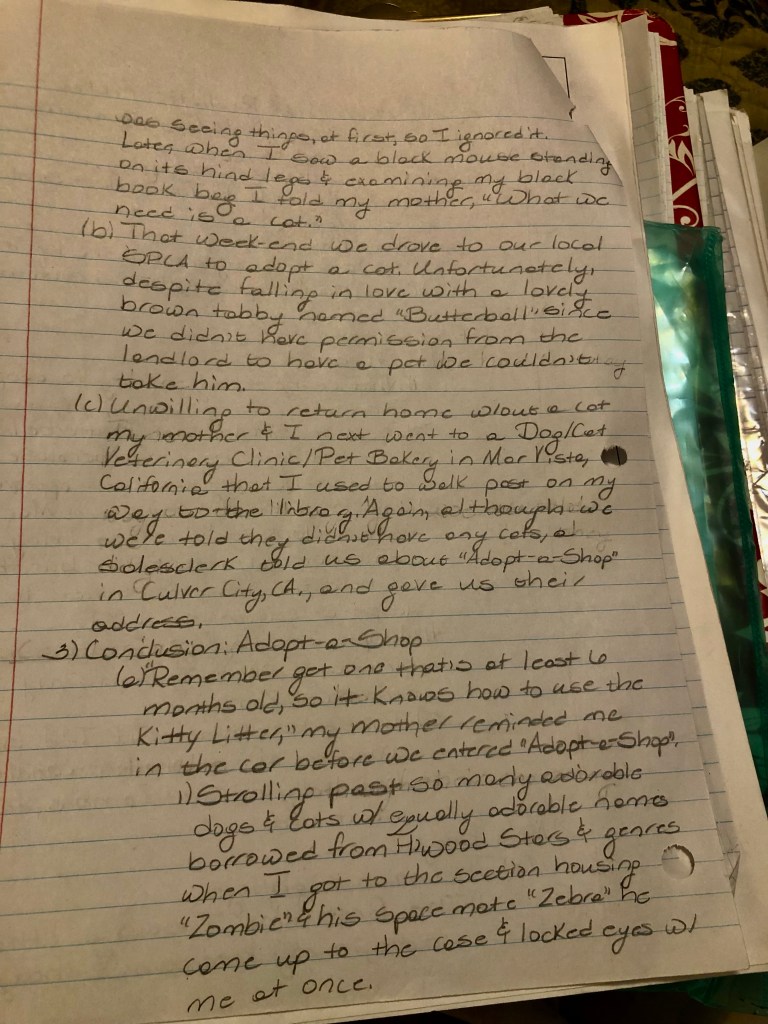 was seeing things, at first, so I ignored it.
Later, when I saw a black mouse standing
on its hind legs & examining my black
book bag I told my mother, "What we
need is a cat."
(b) That week-end we drove to our local
SPCA to adopt a cat. Unfortunately,
despite falling in love with a lovely
brown tabby named "Butterball" since
we didn't have permission from the
landlord to have a pet we couldn't
take him.
(c) Unwilling to return home w/out a cat
my mother & I next went to a Dog/Cat
Veterinary Clinic/Pet Bakery in Mar Vista,
California that I used to walk past on my
way to the library. Again, although we
were told they didn't have any cats, a
salesclerk told us about "Adopt-a-Shop"
in Culver City, CA., and gave us their
address.
3) Conclusion: Adopt-a-Shop
(a) "Remember get one that's at least 6
months old, so it knows how to use the
Kitty Litter," my mother reminded me
in the car before we entered "Adopt-a-Shop".
i) Strolling past so many adorable
dogs & cats w/ equally adorable names
borrowed from H'wood Stars & genres
when I got to the section housing
"Zombie" & his space mate "Zebra" he
came up to the case & locked eyes w/
me at once.